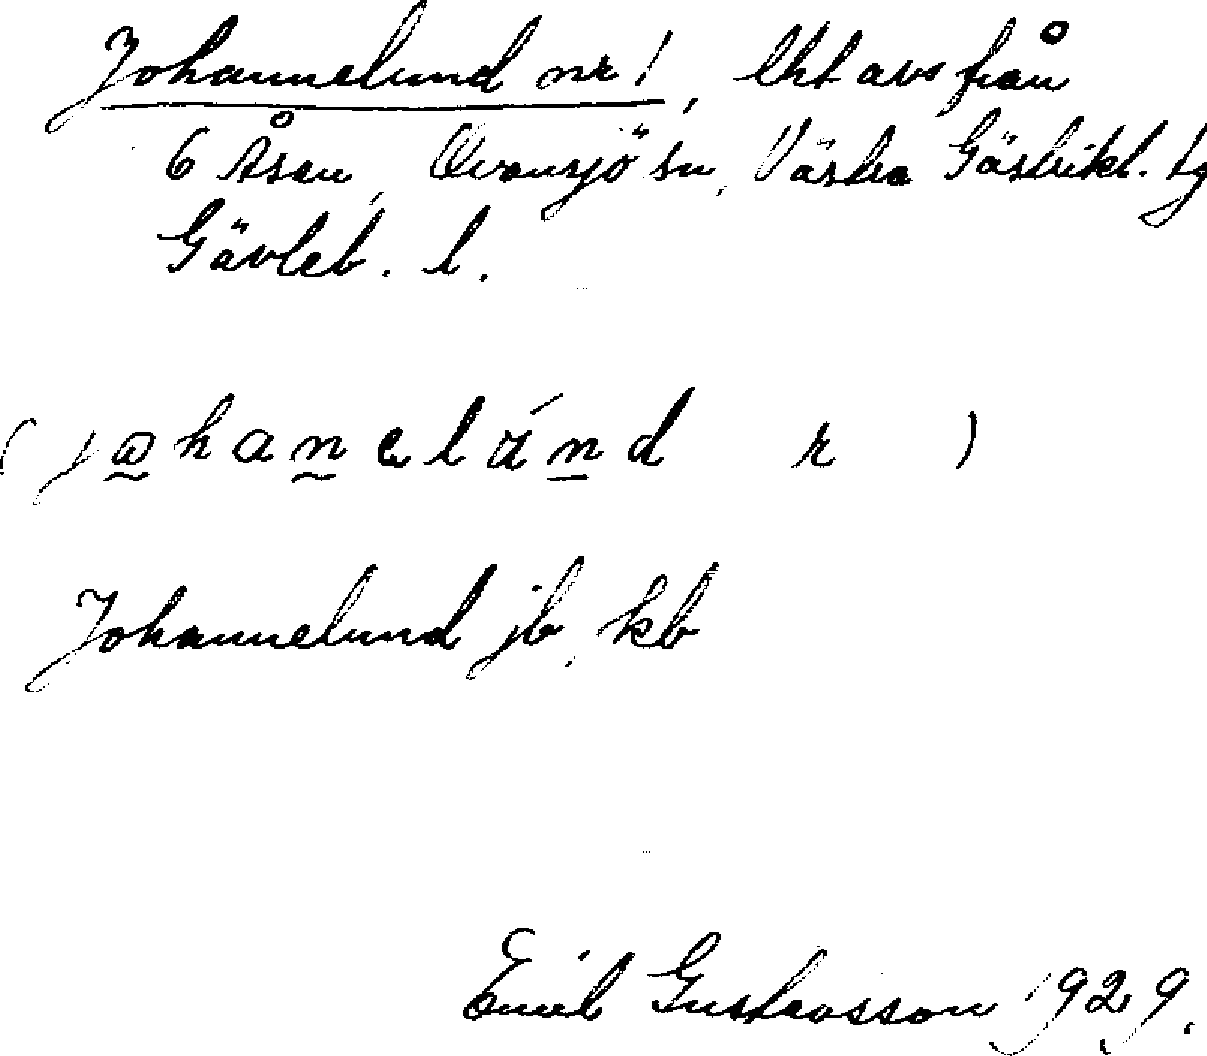 Johannelund nr 1, lht avs från
6 Åsen, Ovansjö sn, Västra Gästrikl. tg
Gävleb. l.
(johanelánd r )
Johannelund jb, kb
Emil Gustavsson 1929.